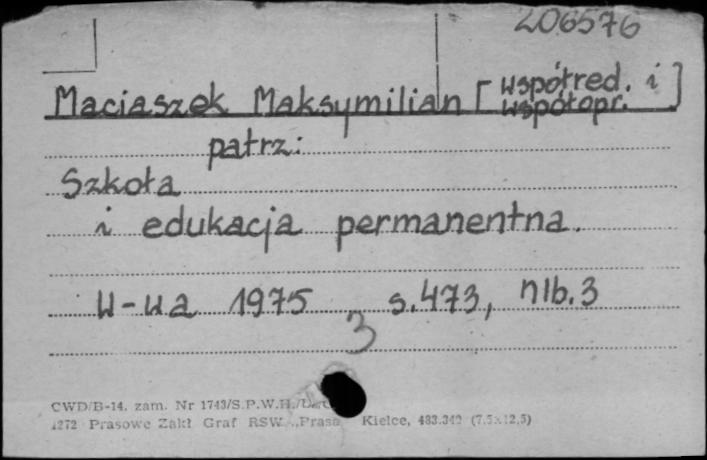 206576
Maciaszek Maksymilian [współred. i
współopr.]
patrz:
Szkoła
i edukacja permanentna.
W-wa 1975 s.473, nlb.3
3
CWD/B-14. zam. Nr 1743/S.P.W.H.
1272 Prasowe Zakł Graf RSW „Prasa Kielce, 483.340 (7,5x12,5)